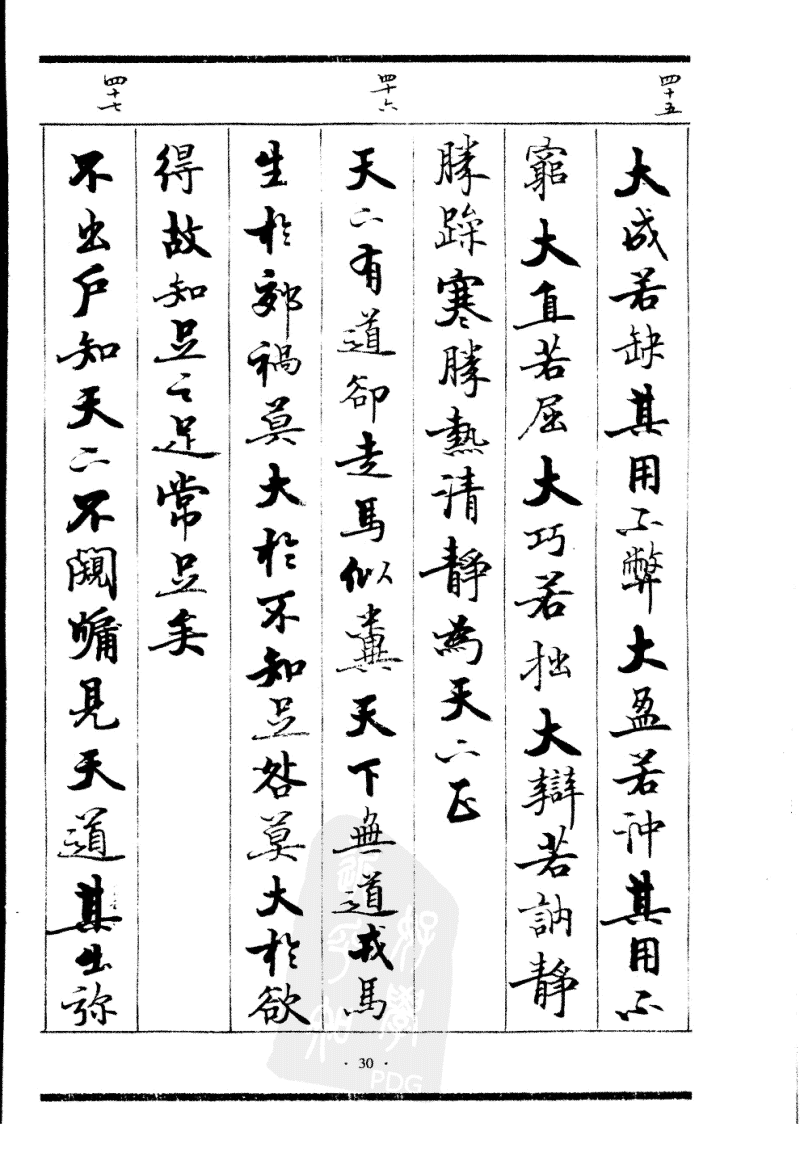 四十五
四十六
四十七
大成若缺其用不弊大盈若沖其用不
窮大直若屈大巧若拙大辯若訥靜
勝躁寒勝熱清靜為天下正
天下有道卻走馬似糞天下無道戎馬
生於郊禍莫大於不知足咎莫大於欲
得故知足之足常足矣
不出戶知天下不闚牖見天道其出彌
· 30 ·
PDG